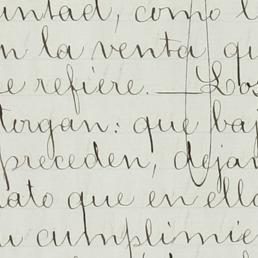 untad, como l
n la venta qu
e refiere. — Los
torgan: que baj
preceden, dejar
rato que en ello
u cumplimie